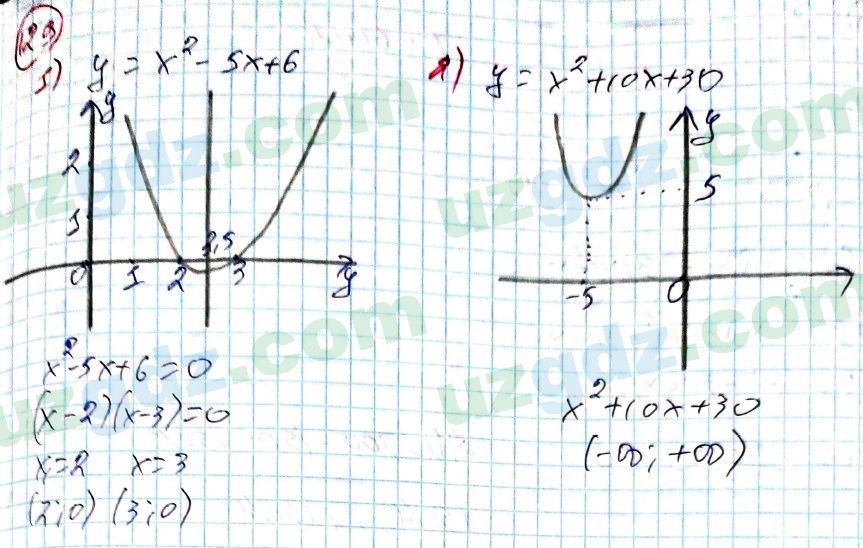 29
1) y = x² - 5x + 6
y
2
1
0 1 2 2,5 3 y
x² - 5x + 6 = 0
(x - 2)(x - 3) = 0
x = 2 x = 3
(2; 0) (3; 0)
2) y = x² + 10x + 30
y
5
-5 0
x² + 10x + 30
(-∞; +∞)
uzgdz.com
uzgdz.com
uzgdz.com
uzgdz.com